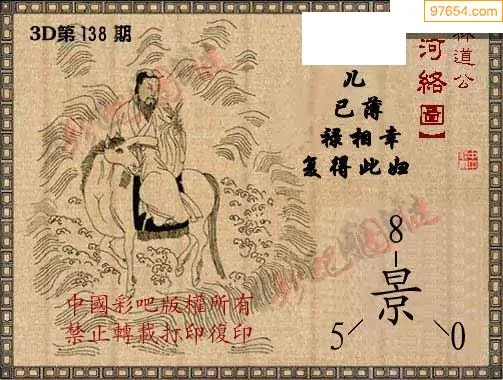 97654.com
3D第138期
林道公
河絡圖】
儿
已薄
禄相幸
复得此妇
8
景
5 0
中國彩吧版權所有
禁止轉載打印復印